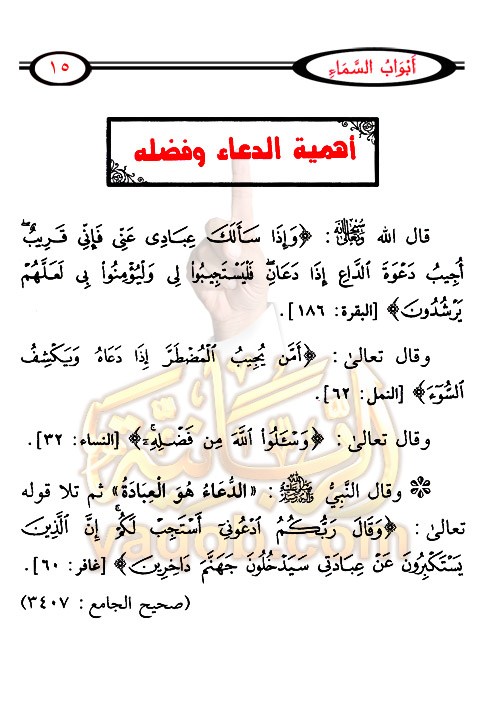 أَبْوَابُ السَّمَاءِ
١٥
أهمية الدعاء وفضله
قال الله ﷾: ﴿وَإِذَا سَأَلَكَ عِبَادِى عَنِّى فَإِنِّى قَرِيبٌ ۖ
أُجِيبُ دَعْوَةَ ٱلدَّاعِ إِذَا دَعَانِ ۖ فَلْيَسْتَجِيبُوا۟ لِى وَلْيُؤْمِنُوا۟ بِى لَعَلَّهُمْ
يَرْشُدُونَ﴾ [البقرة: ١٨٦].
وقال تعالىٰ: ﴿أَمَّن يُجِيبُ ٱلْمُضْطَرَّ إِذَا دَعَاهُ وَيَكْشِفُ
ٱلسُّوٓءَ﴾ [النمل: ٦٢].
وقال تعالىٰ: ﴿وَسْـَٔلُوا۟ ٱللَّهَ مِن فَضْلِهِۦٓ ۚ﴾ [النساء: ٣٢].
❊ وقال النَّبِيُّ ﷺ: «الدُّعَاءُ هُوَ الْعِبَادَةُ» ثم تلا قوله
تعالىٰ: ﴿وَقَالَ رَبُّكُمُ ٱدْعُونِىٓ أَسْتَجِبْ لَكُمْ ۚ إِنَّ ٱلَّذِينَ
يَسْتَكْبِرُونَ عَنْ عِبَادَتِى سَيَدْخُلُونَ جَهَنَّمَ دَاخِرِينَ﴾ [غافر: ٦٠].
(صحيح الجامع: ٣٤٠٧)